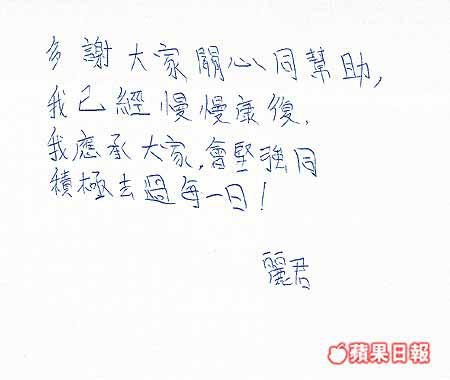 多謝大家關心同幫助,
我已經慢慢康復.
我應承大家,會堅強同
積極去過每一日!
麗君
蘋果日報